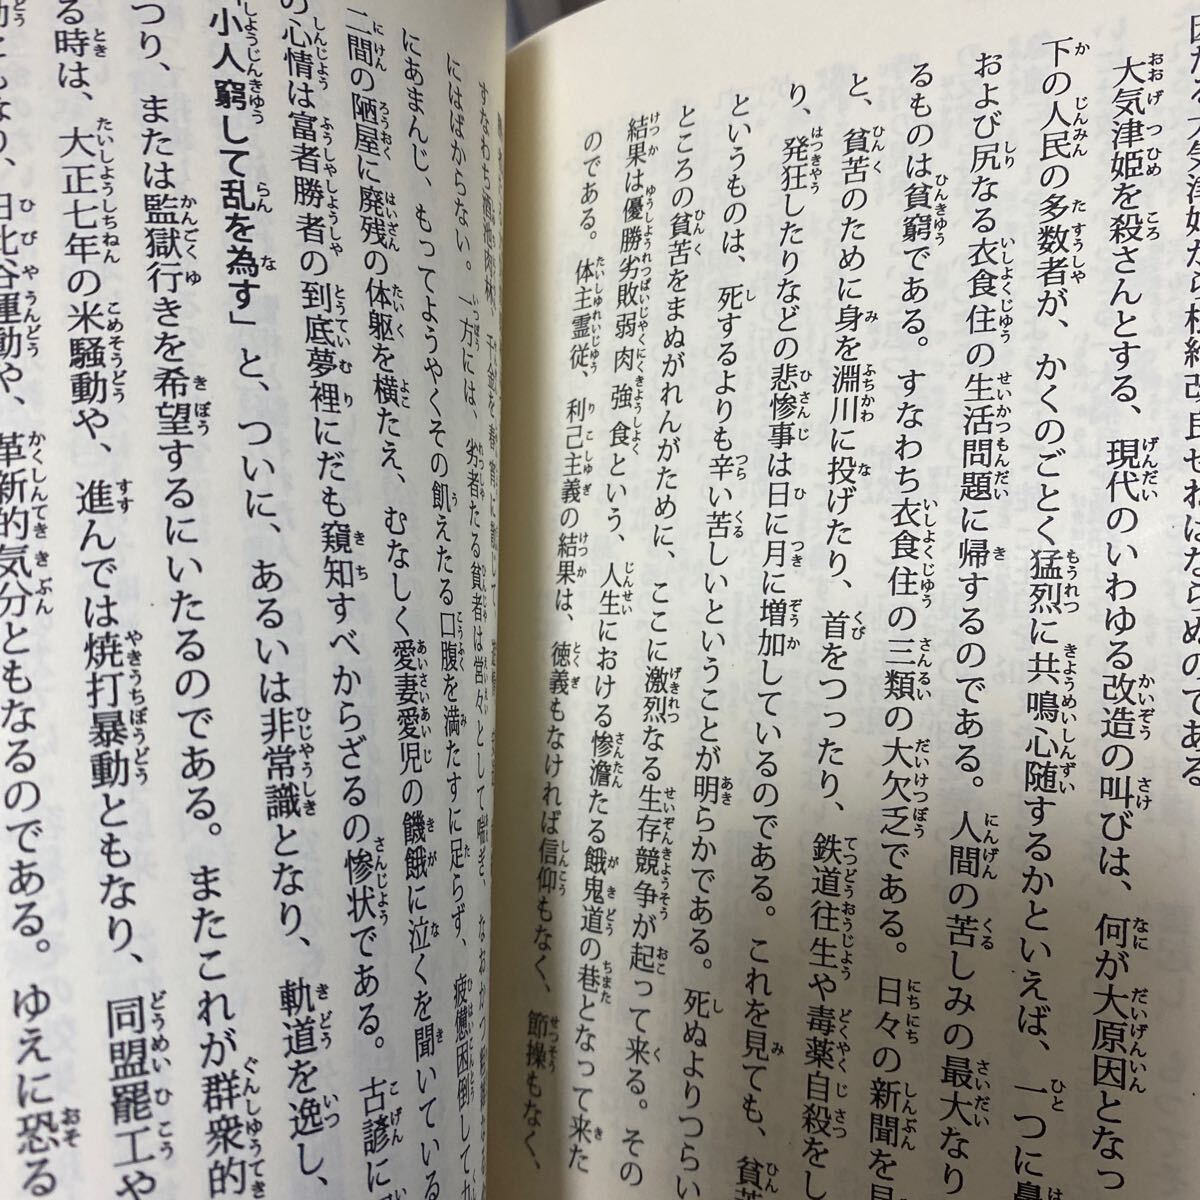 大気津姫を殺さんとする、現代のいわゆる改造の叫びは、何が大原因となっ
下の人民の多数者が、かくのごとく猛烈に共鳴心随するかといえば、一つに鼻
および尻なる衣食住の生活問題に帰するのである。人間の苦しみの最大なり
るものは貧窮である。すなわち衣食住の三類の大欠乏である。日々の新聞を見
と、貧苦のために身を淵川に投げたり、首をつったり、鉄道往生や毒薬自殺をし
り、発狂したりなどの悲惨事は日に月に増加しているのである。これを見ても、貧苦
というものは、死するよりも辛い苦しいということが明らかである。死ぬよりつらい
ところの貧苦をまぬがれんがために、ここに激烈なる生存競争が起って来る。その
結果は優勝劣敗弱肉強食という、人生における惨澹たる餓鬼道の巷となって来た
のである。体主霊従、利己主義の結果は、徳義もなければ信仰もなく、節操もなく、
すなわち酒池肉林、千金を春宵に散じて
にはばからない。一方には、劣者たる貧者は営々として喘ぎ、なおかつ
にあまんじ、もってようやくその飢えたる口腹を満たすに足らず、疲憊困倒して
二間の陋屋に廃残の体躯を横たえ、むなしく愛妻愛児の饑餓に泣くを聞いている
の心情は富者勝者の到底夢裡にだも窺知すべからざるの惨状である。古諺に
「小人窮して乱を為す」と、ついに、あるいは非常識となり、軌道を逸し、
つり、または監獄行きを希望するにいたるのである。またこれが群衆的
る時は、大正七年の米騒動や、進んでは焼打暴動ともなり、同盟罷工や
動ともなり、日比谷運動や、革新的気分ともなるのである。ゆえに恐る